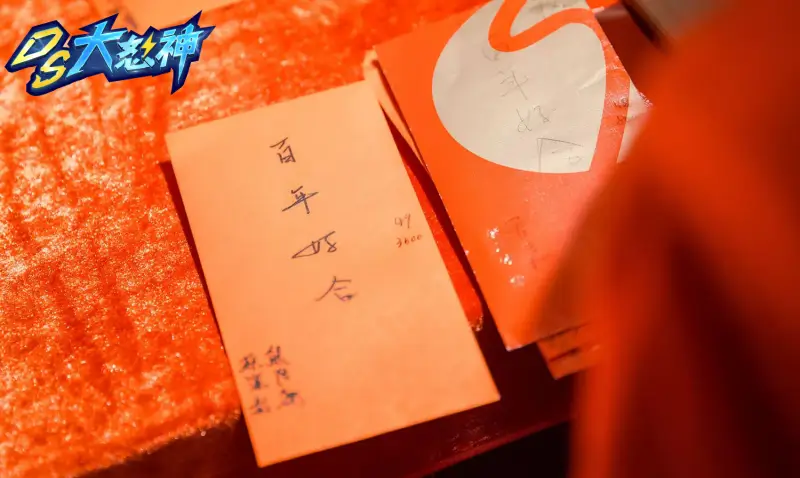 DS大怒神
百年好合
49
3600
百年好合